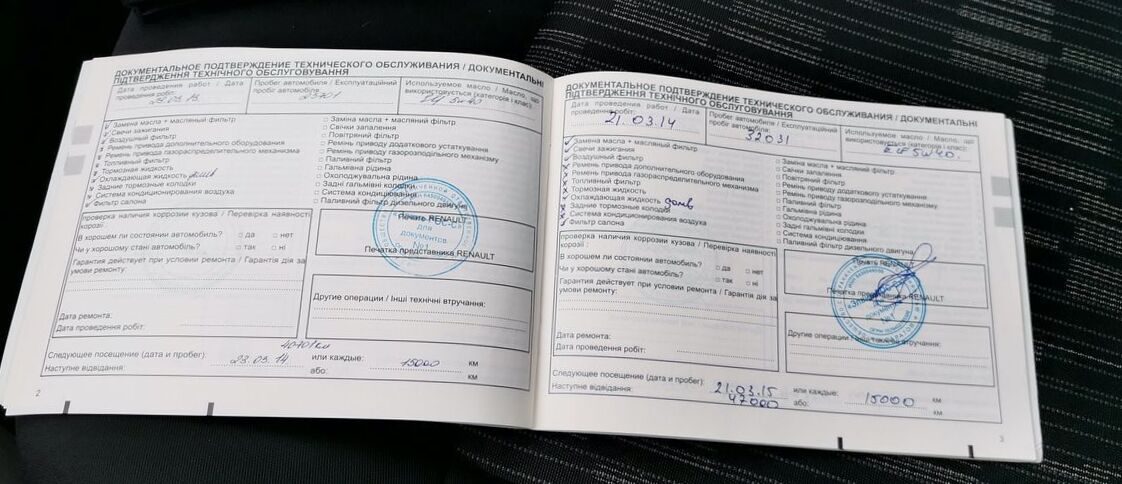 ДОКУМЕНТАЛЬНОЕ ПОДТВЕРЖДЕНИЕ ТЕХНИЧЕСКОГО ОБСЛУЖИВАНИЯ / ДОКУМЕНТАЛЬНІ
ПІДТВЕРДЖЕННЯ ТЕХНІЧНОГО ОБСЛУГОВУВАННЯ
Дата проведения работ / Дата
проведення робіт:
Пробег автомобиля / Експлуатаційний
пробіг автомобіля:
23701
Используемое масло / Масло, що
використовується (категорія і клас):
5w40
Замена масла + масляный фильтр
Свечи зажигания
Воздушный фильтр
Ремень привода дополнительного оборудования
Ремень привода газораспределительного механизма
Топливный фильтр
Тормозная жидкость
Охлаждающая жидкость долив
Задние тормозные колодки
Система кондиционирования воздуха
Фильтр салона
Заміна масла + масляний фільтр
Свічки запалення
Повітряний фільтр
Ремінь приводу додаткового устаткування
Ремінь приводу газорозподільного механізму
Паливний фільтр
Гальмівна рідина
Охолоджувальна рідина
Задні гальмівні колодки
Система кондиціювання
Паливний фільтр дизельного двигуна
Проверка наличия коррозии кузова / Перевірка наявності
корозії:
В хорошем ли состоянии автомобиль? да нет
Чи у хорошому стані автомобіль? так ні
Гарантия действует при условии ремонта / Гарантія діє за
умови ремонту:
Дата ремонта:
Дата проведення робіт:
Печать RENAULT
для
документов
№1
Печатка представника RENAULT
Другие операции / Інші технічні втручання:
40701км
Следующее посещение (дата и пробег): 23.03.14 или каждые: 15000 км
Наступне відвідання: або: км
2
ДОКУМЕНТАЛЬНОЕ ПОДТВЕРЖДЕНИЕ ТЕХНИЧЕСКОГО ОБСЛУЖИВАНИЯ / ДОКУМЕНТАЛЬНІ
ПІДТВЕРДЖЕННЯ ТЕХНІЧНОГО ОБСЛУГОВУВАННЯ
Дата проведения работ / Дата
проведення робіт:
21.03.14
Пробег автомобиля / Експлуатаційний
пробіг автомобіля:
32031
Используемое масло / Масло, що
використовується (категорія і клас):
5w40.
Замена масла + масляный фильтр
Свечи зажигания
Воздушный фильтр
Ремень привода дополнительного оборудования
Ремень привода газораспределительного механизма
Топливный фильтр
Тормозная жидкость
Охлаждающая жидкость долив
Задние тормозные колодки
Система кондиционирования воздуха
Фильтр салона
Заміна масла + масляний фільтр
Свічки запалення
Повітряний фільтр
Ремінь приводу додаткового устаткування
Ремінь приводу газорозподільного механізму
Паливний фільтр
Гальмівна рідина
Охолоджувальна рідина
Задні гальмівні колодки
Система кондиціювання
Паливний фільтр дизельного двигуна
Проверка наличия коррозии кузова / Перевірка наявності
корозії:
В хорошем ли состоянии автомобиль? да нет
Чи у хорошому стані автомобіль? так ні
Гарантия действует при условии ремонта / Гарантія діє за
умови ремонту:
Дата ремонта:
Дата проведення робіт:
Печать RENAULT
Печатка представника RENAULT
Другие операции / Інші технічні втручання:
Следующее посещение (дата и пробег): 21.03.15 или каждые: 15000 км
Наступне відвідання: 47000 або: км
3